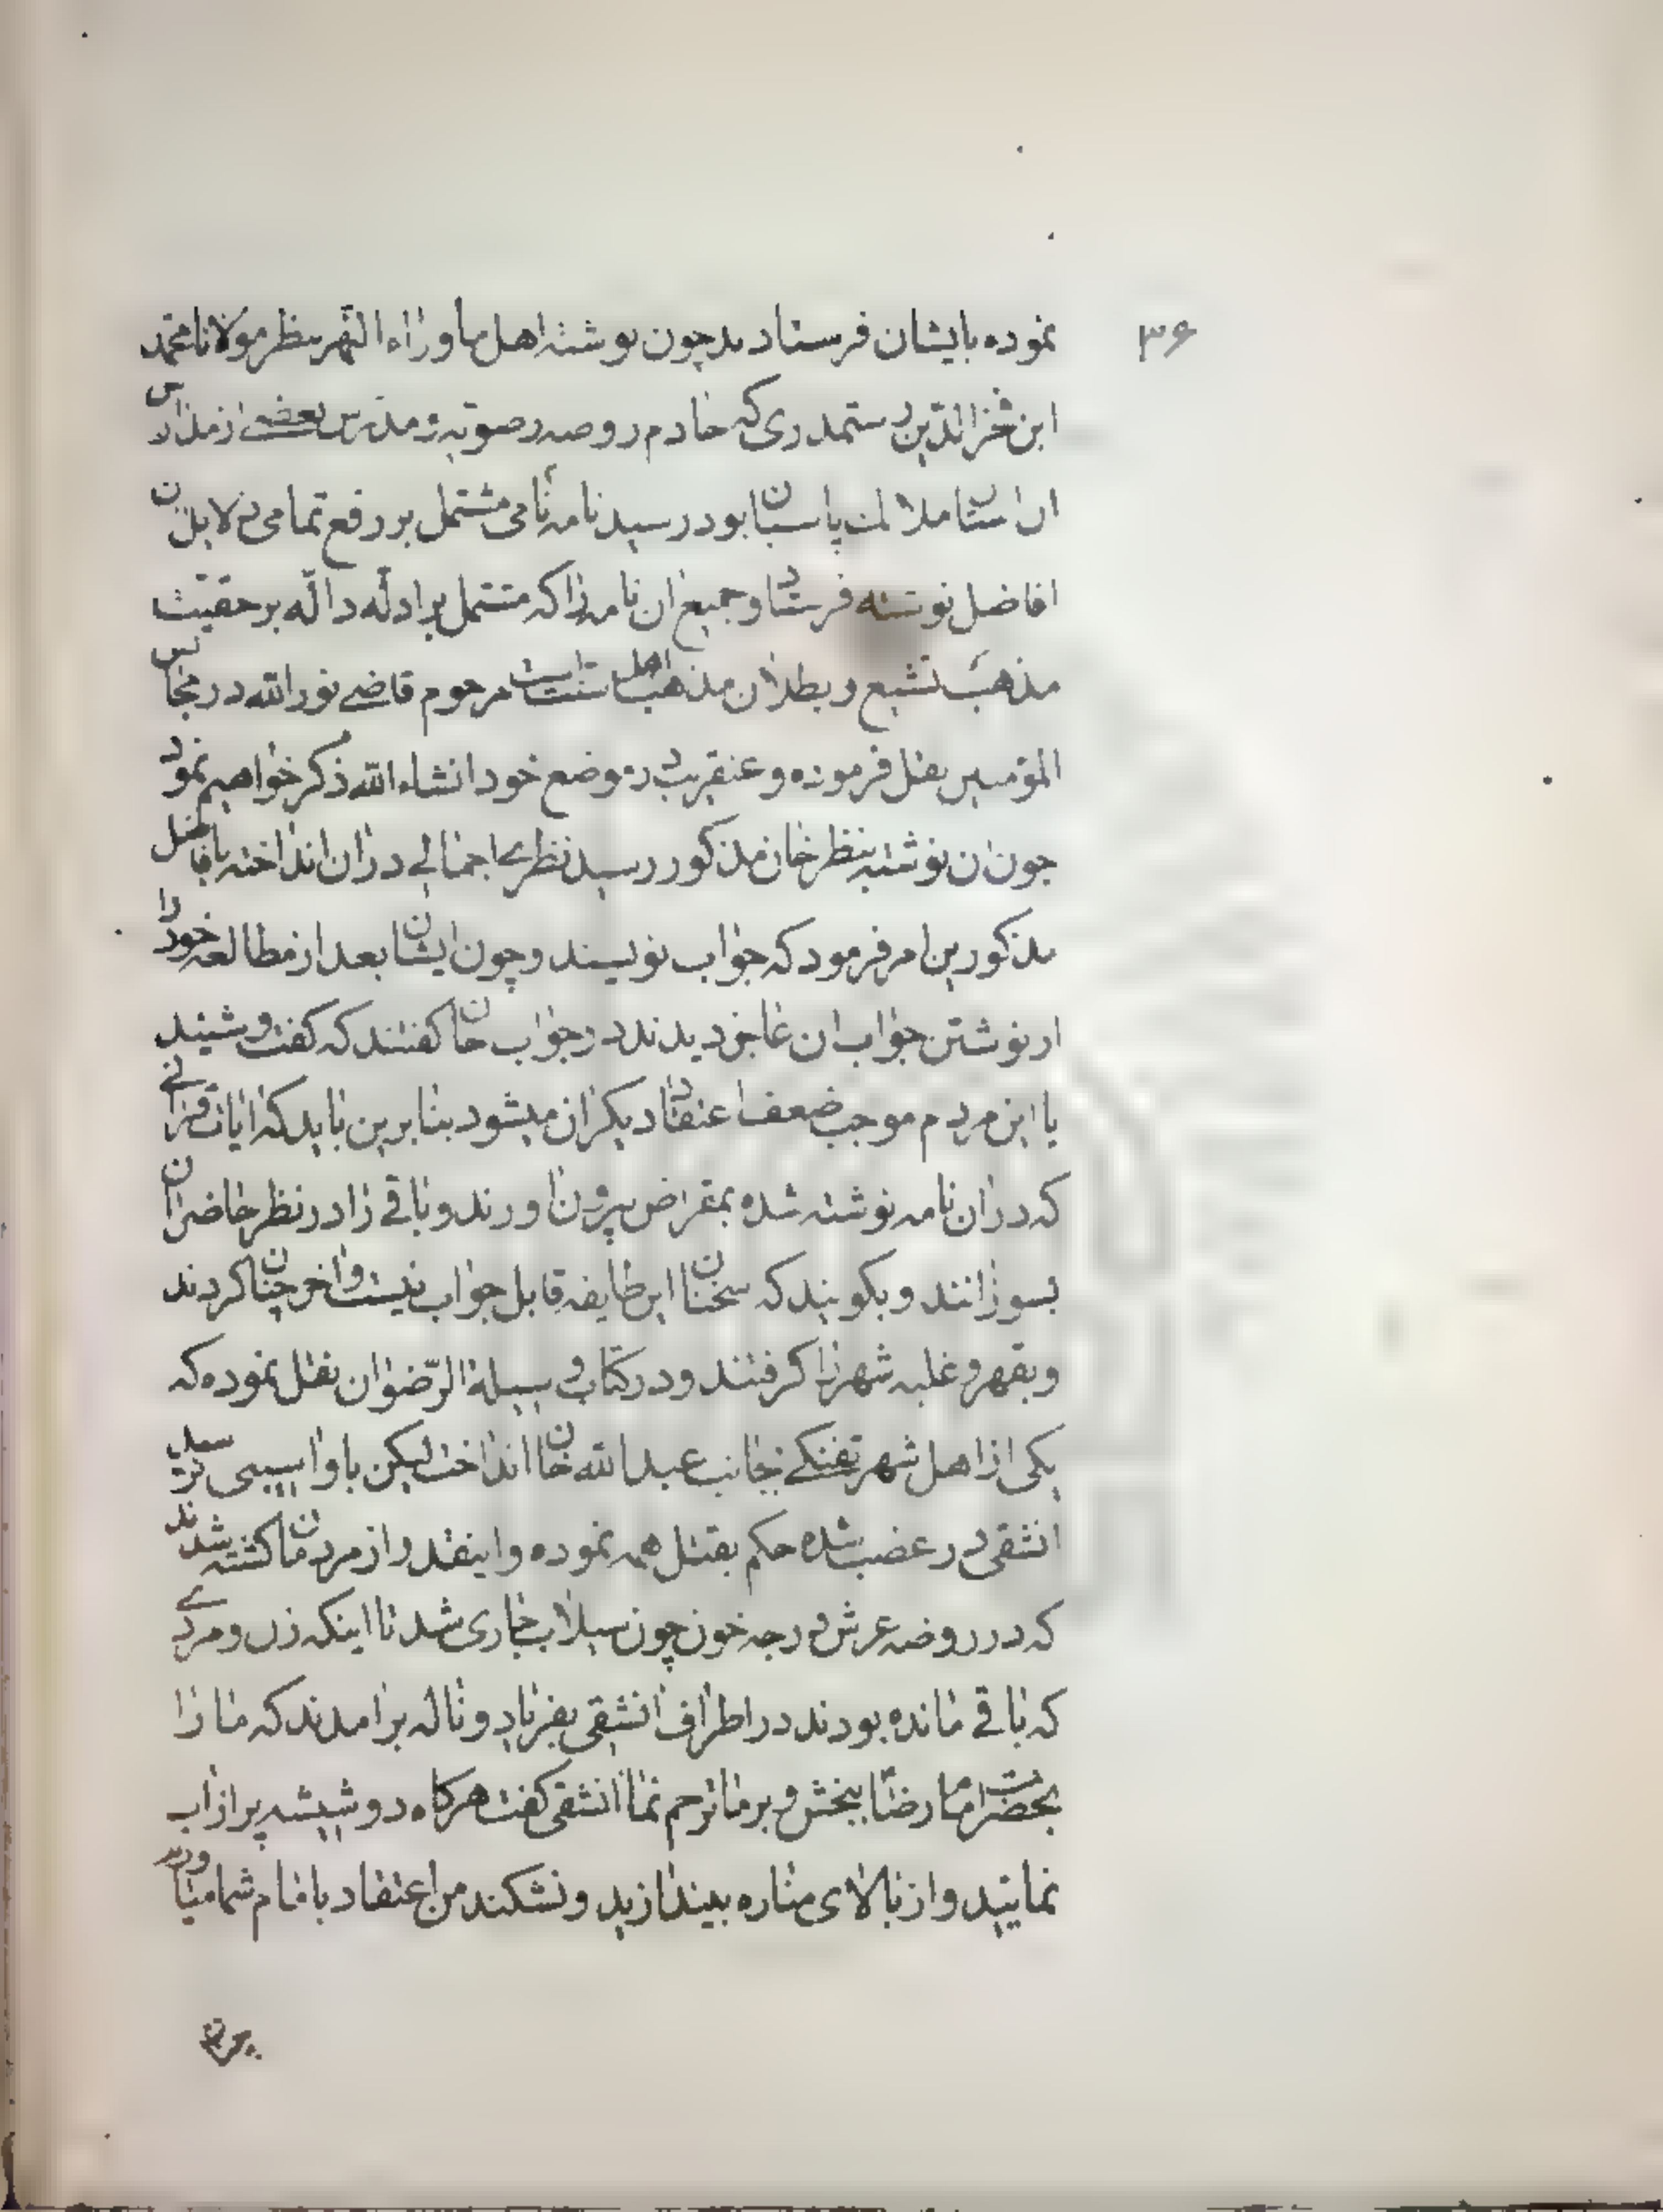 ۳۶
نموده بایشان فرستادند چون نوشته اهل ماوراء النهر بنظر مولانا محمد
ابن فخر الدین رستمدری که خادم روضه رضویه و مدرس بعضی از مدارس
ان استان ملائک پاسبان بود رسید نامه نامی مشتمل بر رفع تمامی دلایل ان
افاضل نوشته فرستاد و جمیع ان نامه را که مشتمل بر ادله داله بر حقیت
مذهب تشیع و بطلان مذهب اهل سنت است مرحوم قاضی نور الله در مجالس
المؤمنین نقل فرموده و عنقریب در موضع خود انشاء الله ذکر خواهیم نمود
چون ان نوشته بنظر خان مذکور رسید نظری اجمالی در ان انداخته بافاضل
مذکورین امر فرمود که جواب نویسند و چون ایشان بعد از مطالعه خود را
از نوشتن جواب ان عاجز دیدند در جواب خان گفتند که گفت و شنید
با این مردم موجب ضعف اعتقاد دیگران میشود بنا برین باید که ایات قرانی
که در ان نامه نوشته شده بمقراض بیرون اورند و باقی را در نظر حاضران
بسوزانند و بگویند که سخنان این طایفه قابل جواب نیست و اخر چنان کردند
و بقهر و غلبه شهر را گرفتند و در کتاب وسیلة الرضوان نقل نموده که
یکی از اهل شهر تفنگی بجانب عبد الله خان انداخت لیکن باو اسیبی نرسید
انشقی در غضب شده حکم بقتل همه نموده و اینقدر از مردمان کشته شدند
که در روضه عرش درجه خون چون سیلاب جاری شد تا اینکه زن و مردی
که باقی مانده بودند در اطراف انشقی بفریاد و ناله برامدند که ما را
بحضرت امام رضا ببخش و بر ما ترحم نما انشقی گفت هرگاه دو شیشه پر از اب
نمایید و از بالای مناره بیندازید و نشکند من اعتقاد بامام شما میاورم